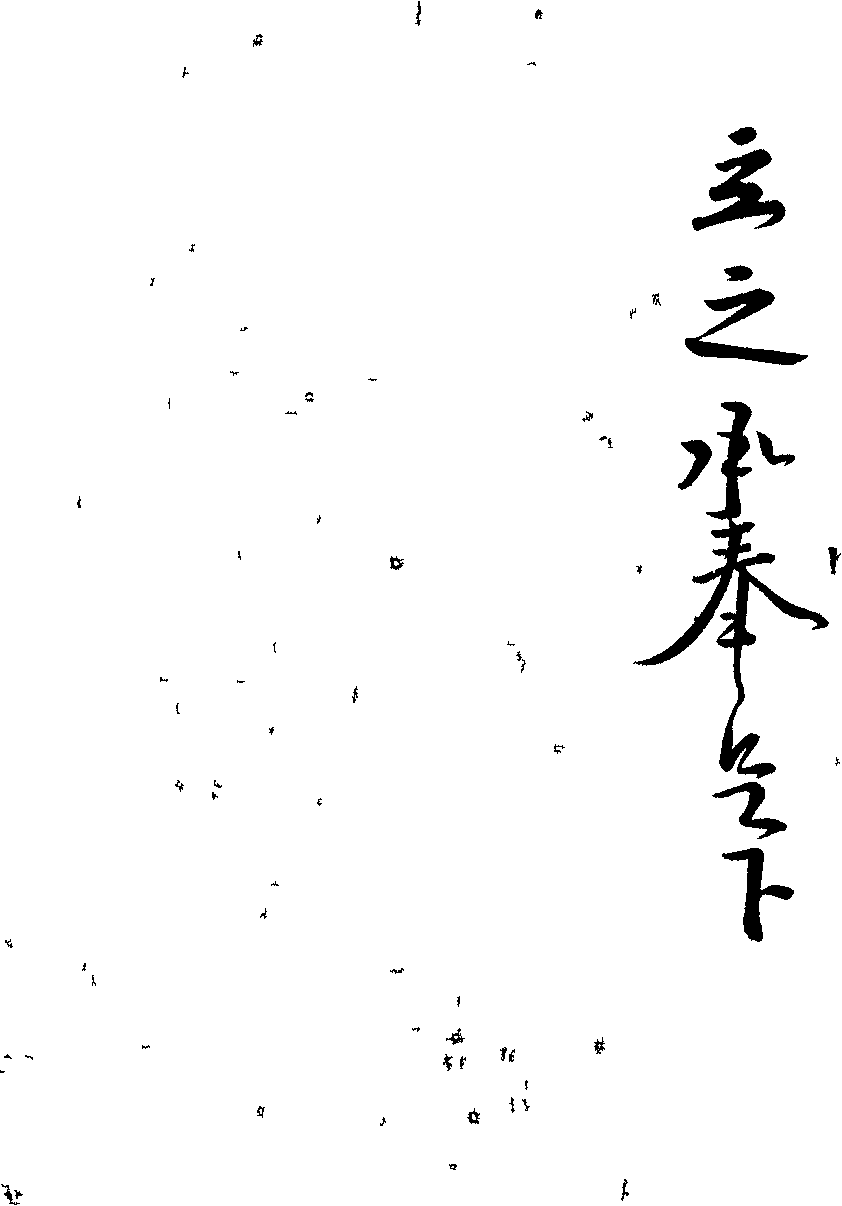 立之承奉足下